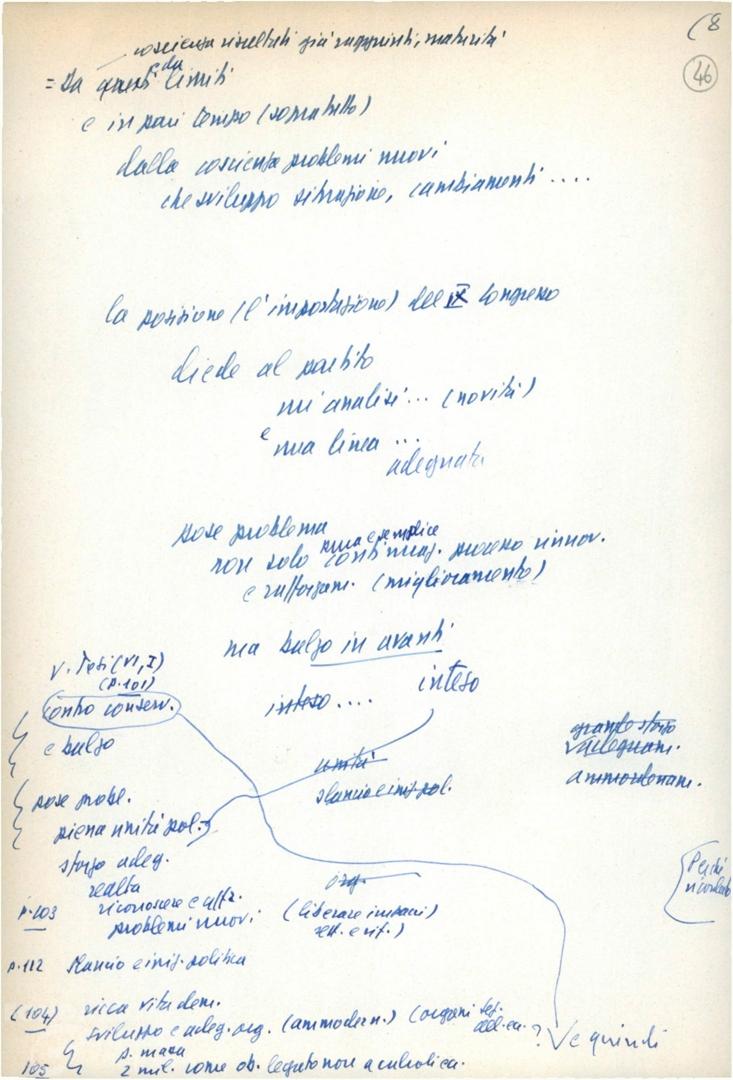 (8
46
coscienza risultati già raggiunti, maturità
= Da questi e da limiti
e in pari tempo (sopratutto)
dalla coscienza problemi nuovi
che sviluppo situazione, cambiamenti ....
la posizione (l'impostazione) del IX Congresso
diede al partito
un'analisi ... (novità)
e una linea ...
adeguata
pose problema
pura e semplice
non solo continuaz. processo rinnov.
e rafforzam. (miglioramento)
ma balzo in avanti
v. Tesi (VI, I)
(p. 101)
contro conserv.
inteso ....
inteso
e balzo
grande sforzo
adeguam.
ammodernam.
unità
slancio e iniz. pol.
pose probl.
piena unità pol.
sforzo adeg.
realtà
org.
p. 103 riconoscere e affr.
problemi nuovi
(liberare impacci)
sett. e rif.)
Perché
ricordato
p. 112 slancio e iniz. politica
(104) ricca vita dem.
sviluppo e adeg. org. (ammodern.) (organi
dell.
?
V e quindi
105 p. massa
2 mil. come ob. legato non a